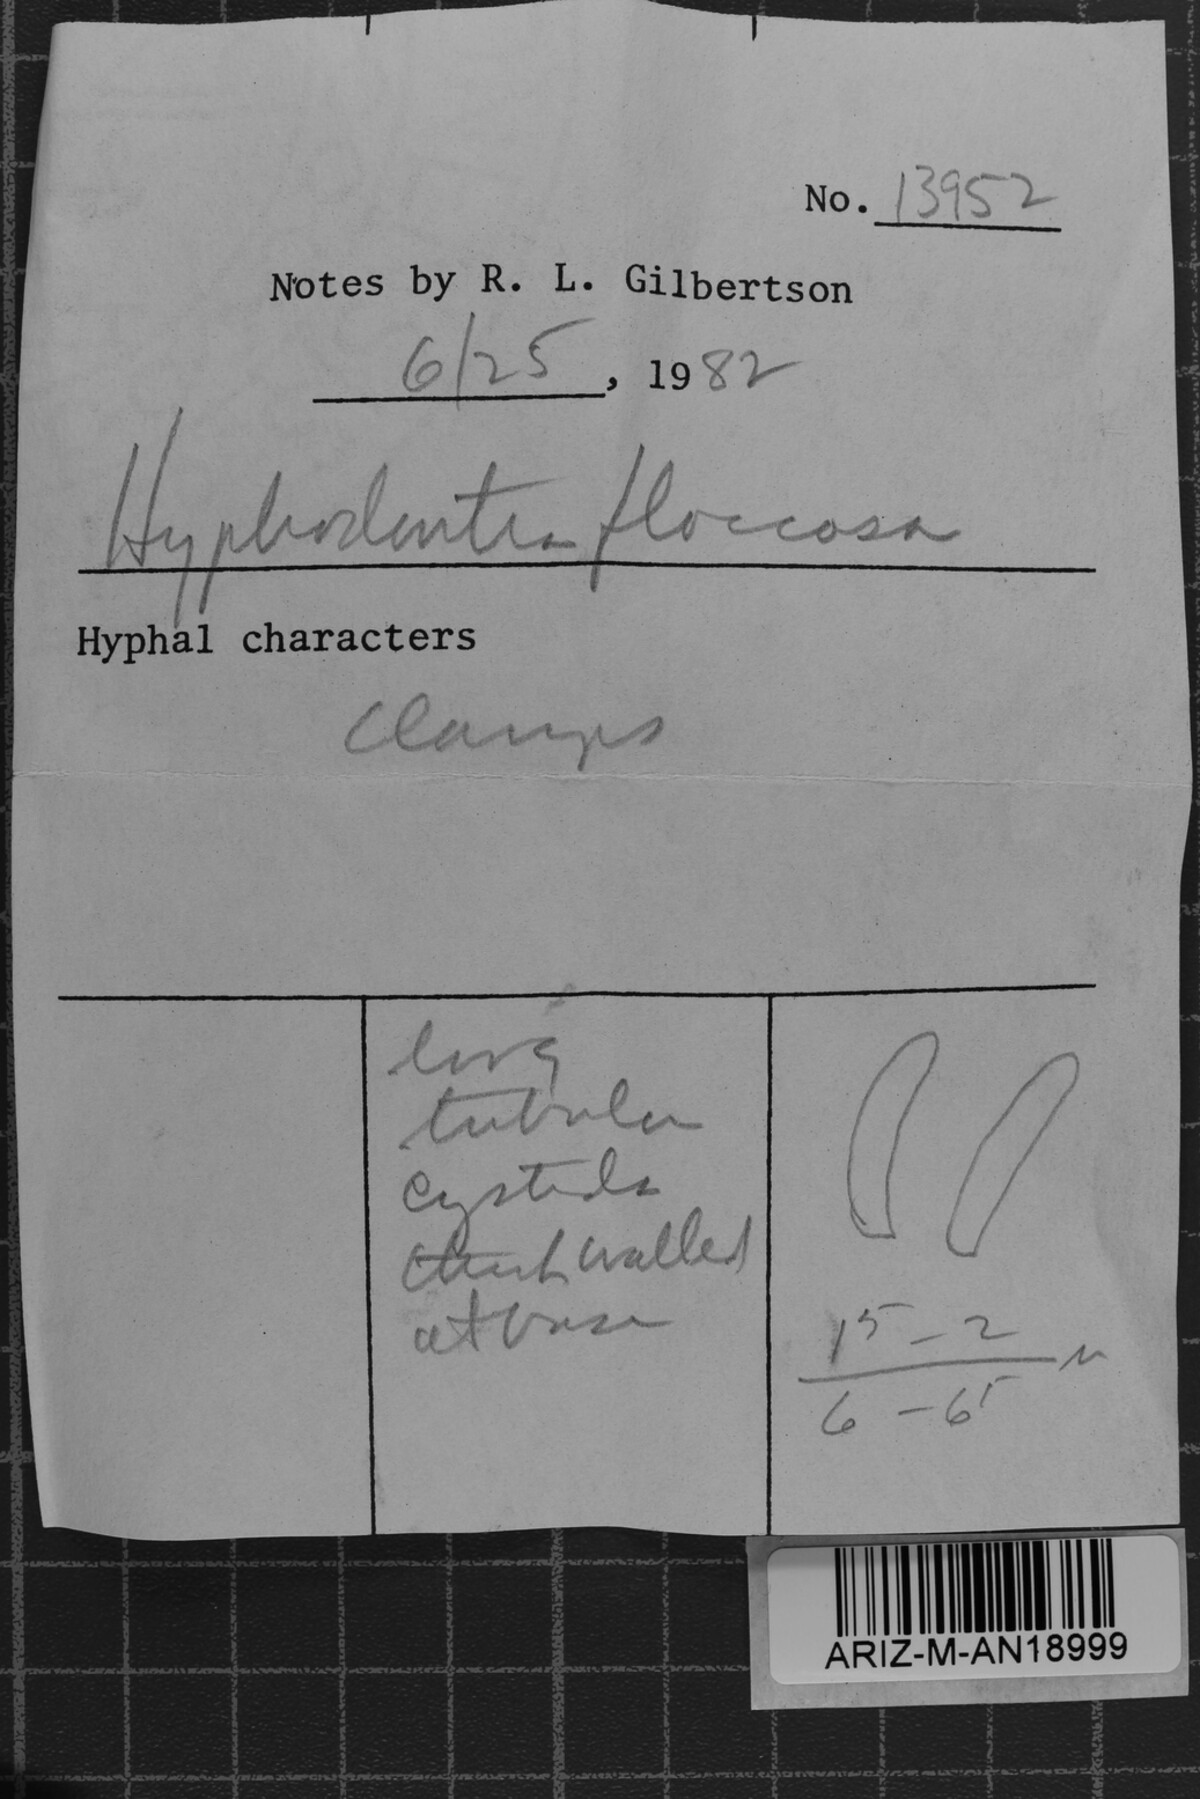 No. 13952
Notes by R. L. Gilbertson
6/25, 1982
Hyphodontia floccosa
Hyphal characters
clamps
long
tubular
cystidia
thick walled
at base
15 – 2
6 – 65 µ
ARIZ-M-AN18999